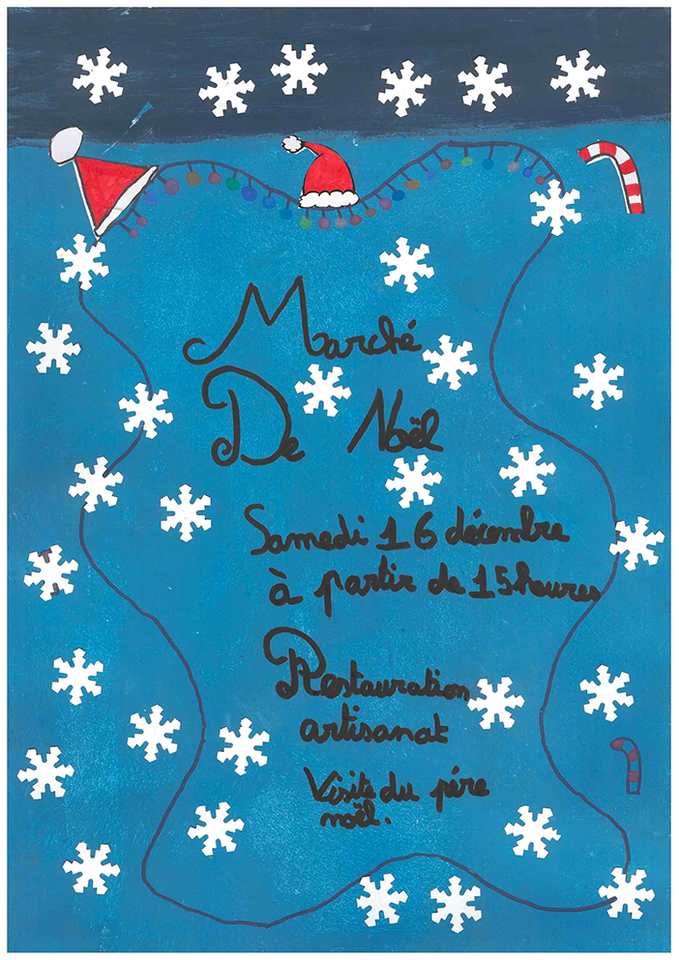 Marché
De Noël
Samedi 16 décembre
à partir de 15heures
Restauration
artisanat
Visite du pére
noël.